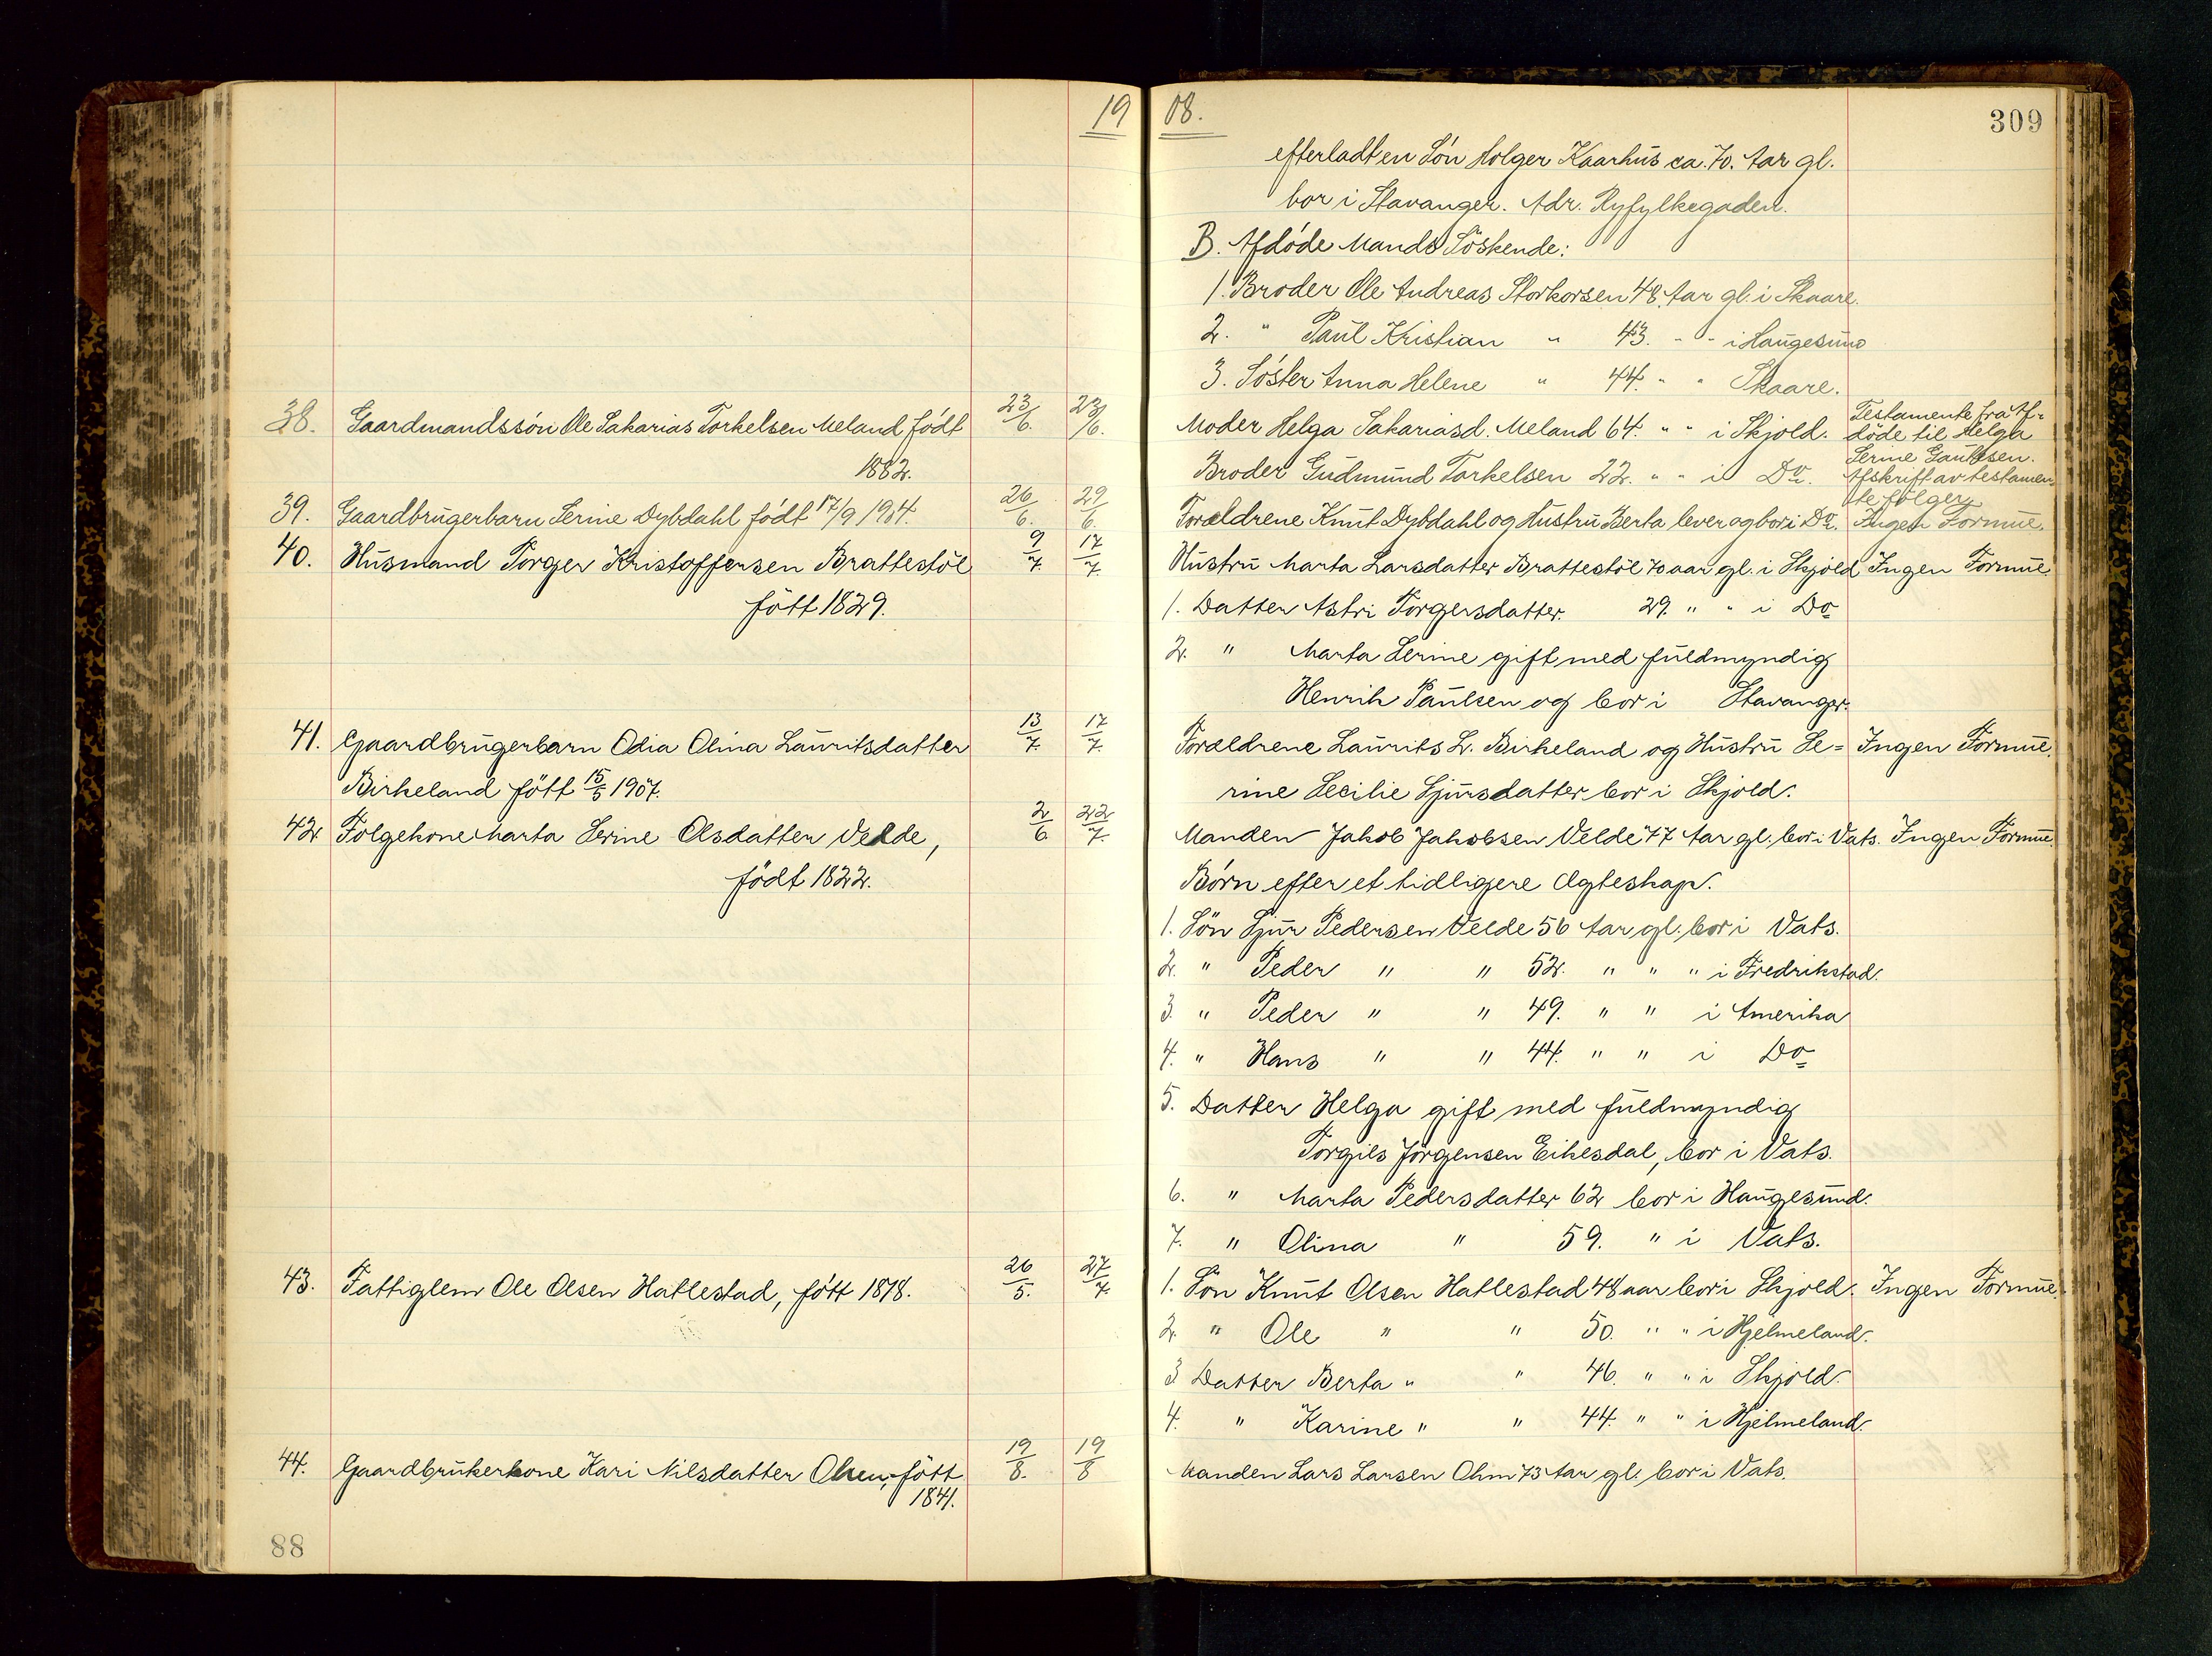 19 08.
309
efterladt en Søn Holger Kaarhus ca. 70. Aar gl.
bor i Stavanger. Adr. Ryfylkegaden.
B. Afdøde Mands Søskende:
1. Broder Ole Andreas Storkorsen 48. Aar gl. i Skaare.
2. " Paul Kristian " 43. " " i Haugesund
3. Søster Anna Helene " 44. " " Skaare.
38. Gaardmandssøn Ole Sakarias Torkelsen Meland født 23/6. 23/6. Moder Helga Sakariasd. Meland 64. " " i Skjold. Testamente fra Af-
døde til Helga
1882. Broder Gudmund Torkelsen 22. " " i Do. Serine Gautesen.
Afskrift av testamen
te følger
39. Gaardbrugerbarn Serine Dybdahl født 17/9 1904. 26/6. 29/6. Forældrene Knut Dybdahl og Hustru Berta lever og bor i Do. Ingen Formue.
40. Husmand Torger Kristoffersen Brattestøl 9/7. 17/7. Hustru Marta Larsdatter Brattestøl 70 aar gl. i Skjold Ingen Formue.
født 1829. 1. Datter Astri Torgersdatter. 29. " " i Do
2. " Marta Serine gift med fuldmyndig
Henrik Paulsen og bor i Stavanger.
41. Gaardbrugerbarn Odia Olina Lauritsdatter 13/7. 17/7. Forældrene Laurits L. Birkeland og Hustru Se= Ingen Formue.
Birkeland født 15/5 1907. rine Secilie Sjursdatter bor i Skjold.
42 Folgekone Marta Serine Olsdatter Velde, 2/6 22/7. Manden Jakob Jakobsen Velde 77 Aar gl. bor i Vats. Ingen Formue.
født 1822. Børn efter et tidligere Ægteskap.
1. Søn Sjur Pedersen Velde 56 Aar gl. bor i Vats.
2. " Peder " " 52. " " " i Fredrikstad.
3. " Peder " " 49. " " i Amerika
4. " Hans " " 44. " " i Do
5. Datter Helga gift med fuldmyndig
Torgils Jørgensen Eikesdal, bor i Vats.
6. " Marta Pedersdatter 62 bor i Haugesund.
7. " Olina " 59. " i Vats.
43. Fattiglem Ole Olsen Hatlestad, født 1818. 26/5. 27/7. 1. Søn Knut Olsen Hatlestad 48 aar bor i Skjold. Ingen Formue.
2. " Ole " " 50. " " i Hjelmeland.
3 Datter Berta " " 46. " " i Skjold.
4. " Karine " " 44. " " i Hjelmeland.
44. Gaardbrukerkone Kari Nilsdatter Ohm, født 19/8. 19/8 Manden Lars Larsen Ohm 73 Aar gl. bor i Vats.
1841.
88